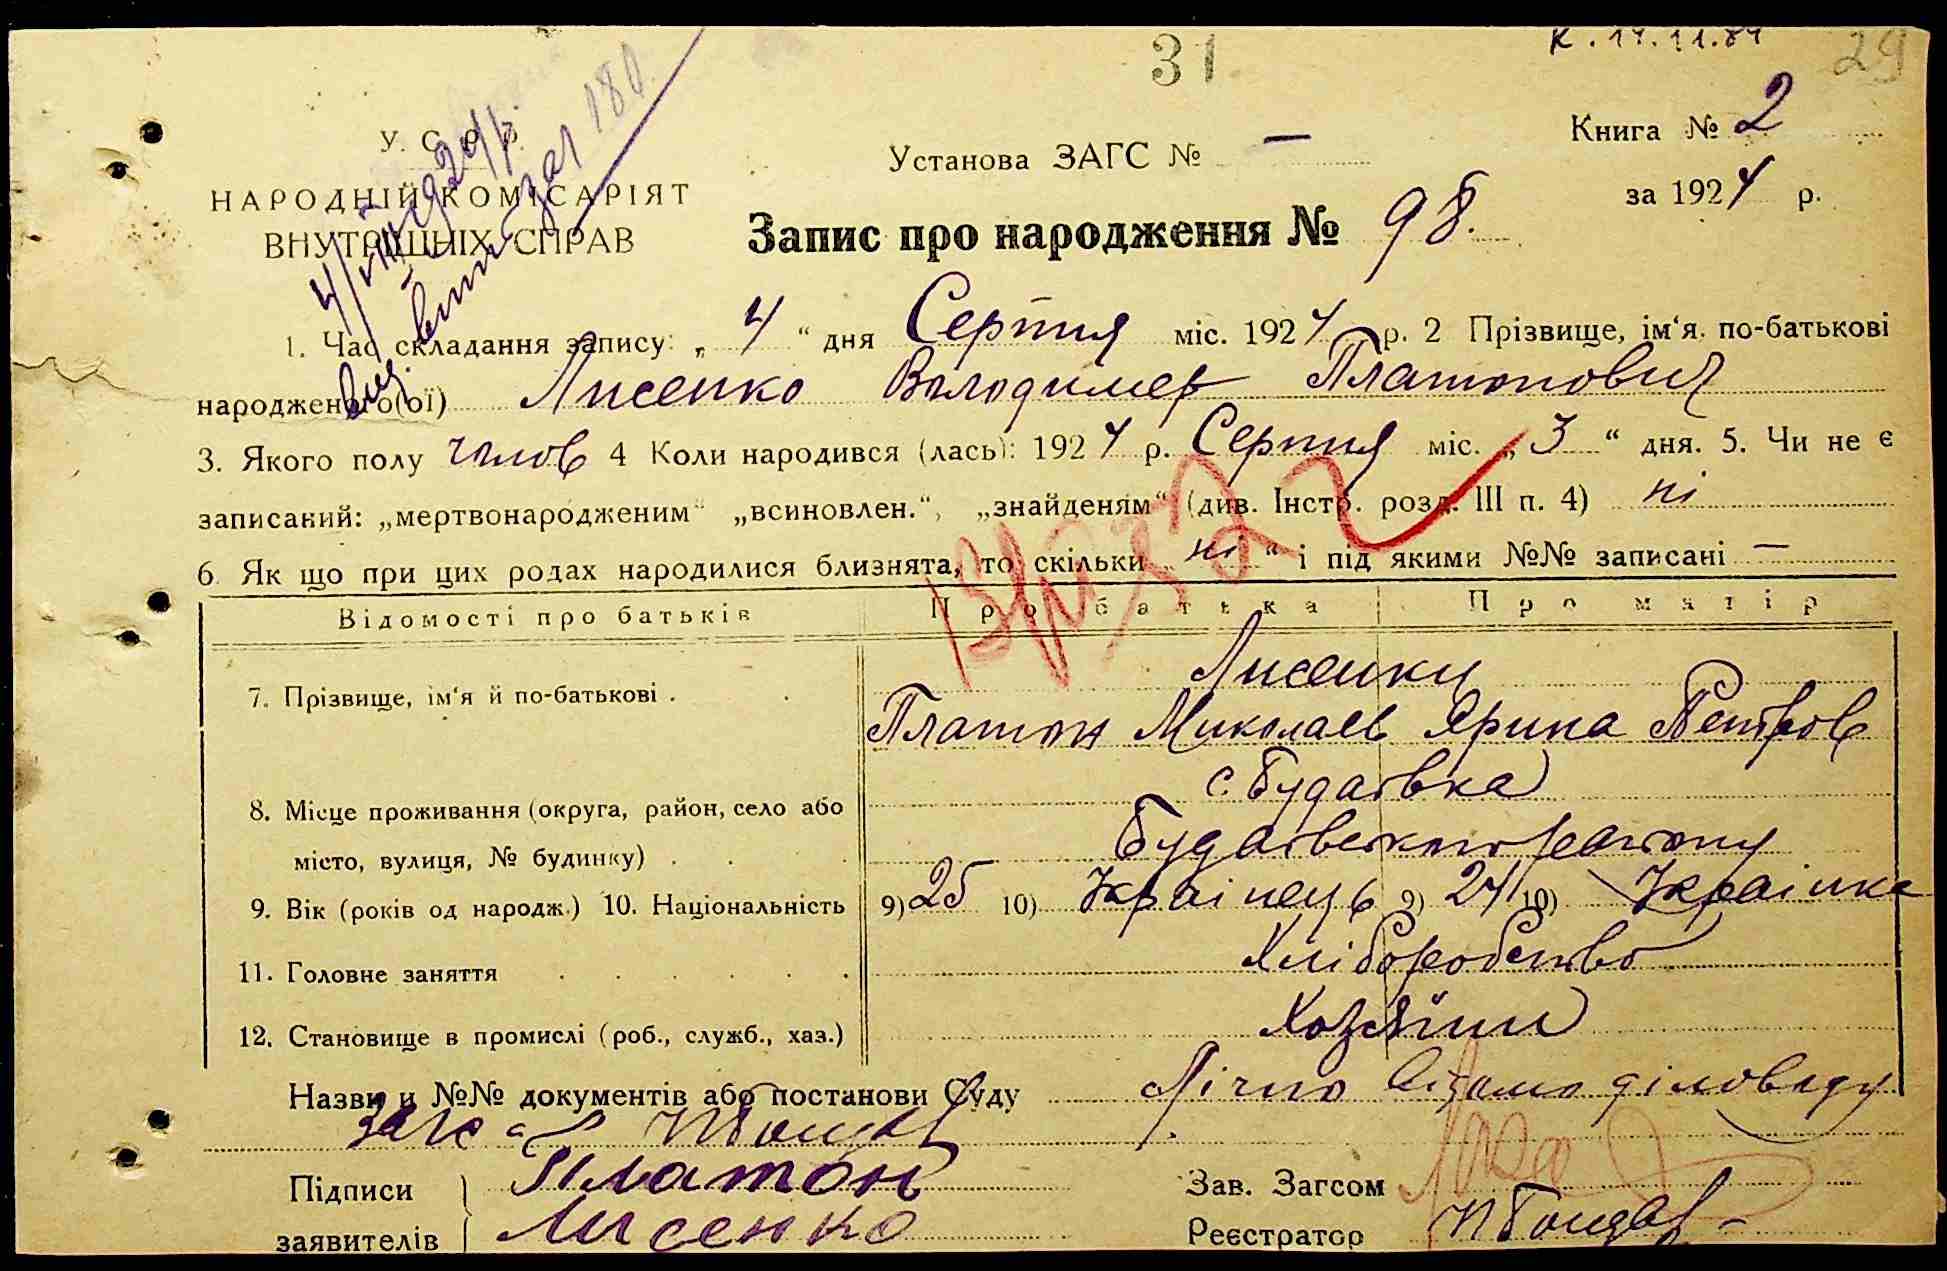 31
К. 14.11.84
29
У. С. Р. Р.
НАРОДНІЙ КОМІСАРІЯТ
ВНУТРІШНІХ СПРАВ
Установа ЗАГС № —
Книга № 2
за 1924 р.
Запис про народження № 98.
1. Час складання запису: „ 4 “ дня Серпня міс. 1924 р. 2 Прізвище, ім‘я. по-батькові
народженого(ої) Лисенко Володимер Платонович
3. Якого полу чолов 4 Коли народився (лась): 1924 р. Серпня міс. „ 3 “ дня. 5. Чи не є
записаний: „мертвонародженим“ „всиновлен.“, „знайденям“ (див. Інстр. розд. III п. 4) ні
6. Як що при цих родах народилися близнята, то скільки „ ні “ і під якими №№ записані —
Відомості про батьків Про батька Про матір
7. Прізвище, ім‘я й по-батькові . . Лисенки
Платон Миколаєв Ярина Петров
8. Місце проживання (округа, район, село або с. Будаївка
місто, вулиця, № будинку) . . . Будаївського району
9. Вік (років од народж.) 10. Національність 9) 25 10) Українець 9) 24 10) Українка
11. Головне заняття . . . . . . Хліборобство
12. Становище в промислі (роб., служб., хаз.) Хозяїни
Назви и №№ документів або постанови Суду Лічно відомо діловоду
Підписи Платон
заявителів Лисенко
Зав. Загсом
Реєстратор